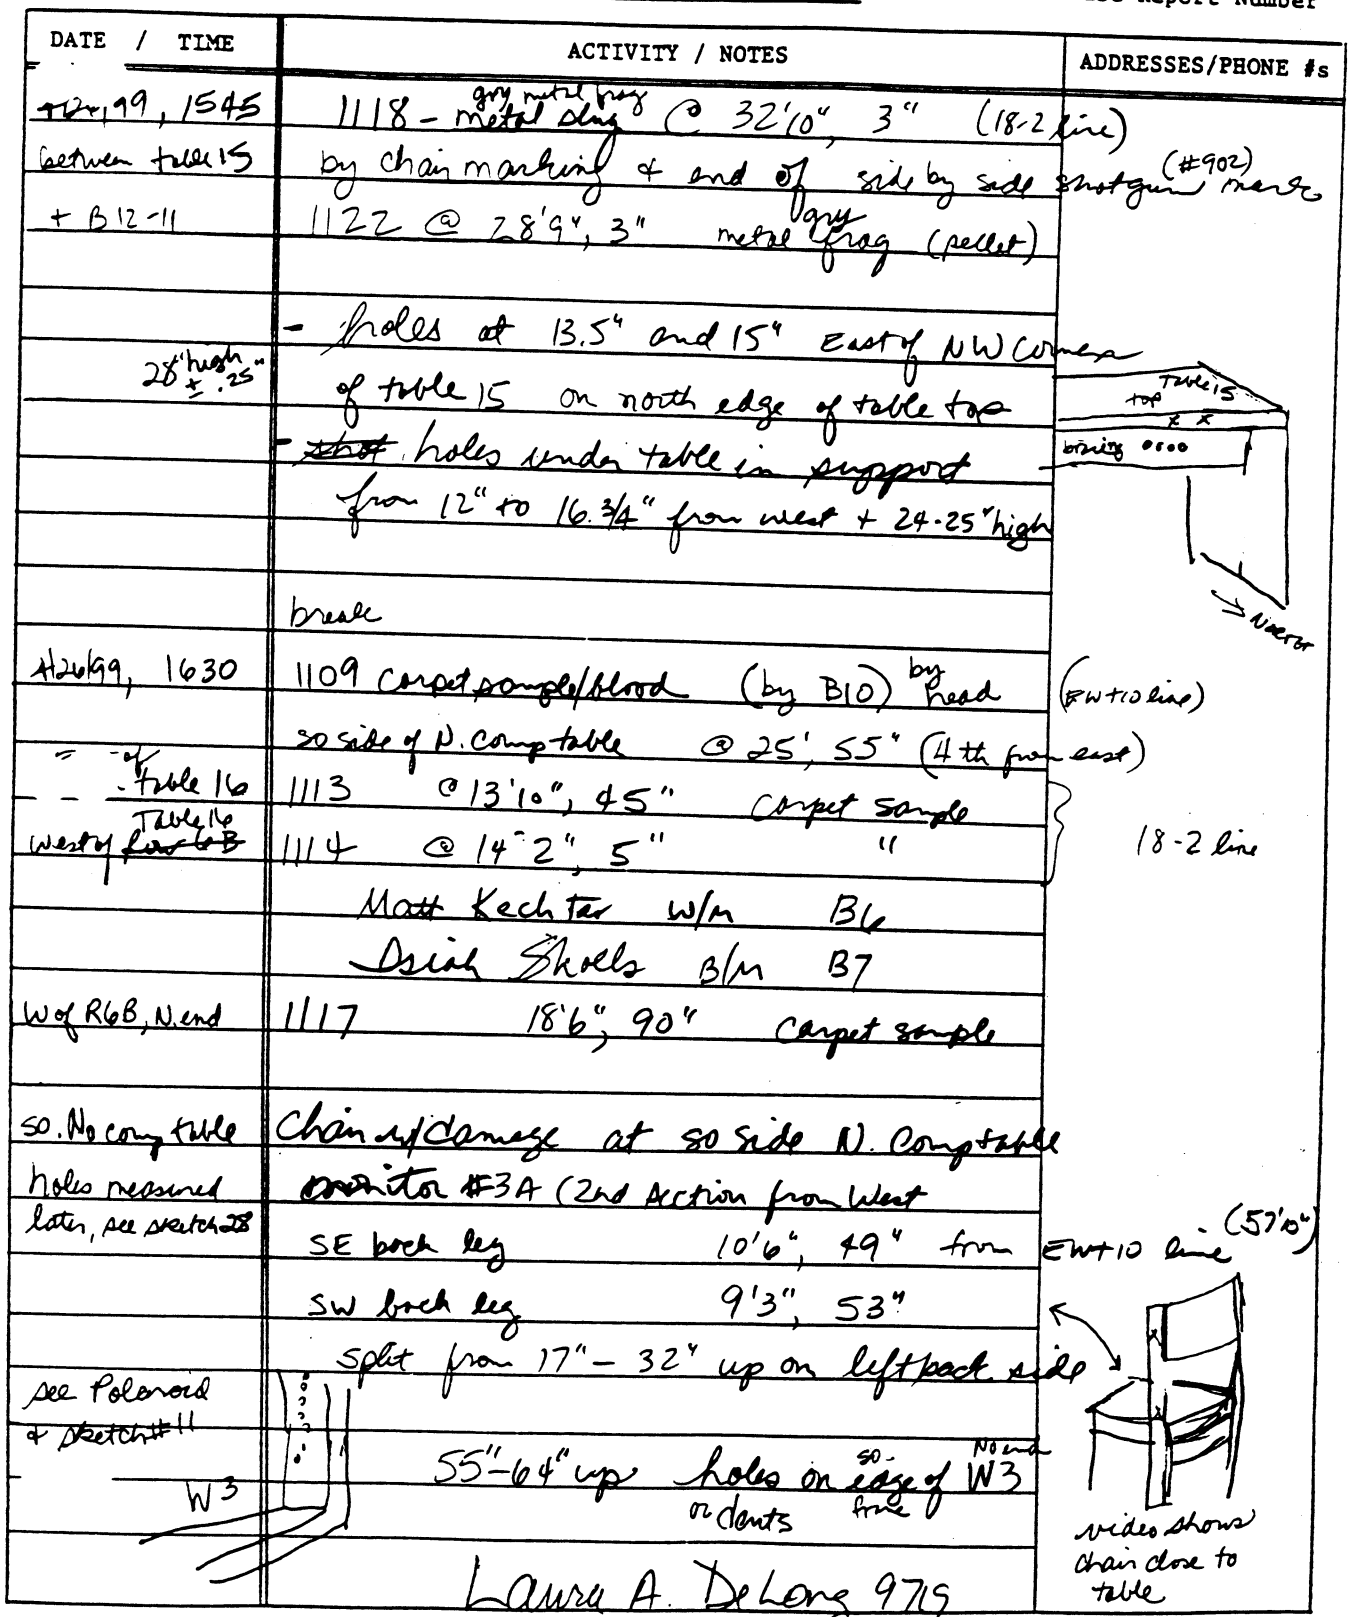 Report Number
DATE / TIME ACTIVITY / NOTES ADDRESSES/PHONE #s
99, 1545 1118 - gry metal frag metal slug @ 32'10", 3" (18-2 line)
between table 15 by chair marking + end of side by side shotgun marks (#902)
+ B12-11 1122 @ 28'9", 3" gry metal frag (pellet)
- holes at 13.5" and 15" East of NW Corner
28" high ± .25" of table 15 on north edge of table top
table 15
top
x x
- shot holes under table in support
bracing
from 12" to 16.3/4" from west + 24-25" high
break
4/26/99, 1630 1109 carpet sample/blood (by B10) by head (EW+10 line)
so side of N. Comp table @ 25', 55" (4th from east)
" - of table 16 1113 @ 13'10", 45" carpet sample
West of Row 6B Table 16 1114 @ 14'-2", 5" " 18-2 line
Matt Kechter W/M B6
Isiah Sholls B/M B7
W of R6B, N. end 1117 18'6", 90" carpet sample
so. No comp table Chair w/damage at so side N. Comp table
holes measured monitor #3A (2nd section from West
later, see sketch 28
SE back leg 10'6", 49" from EW+10 line (57'10")
SW back leg 9'3", 53"
split from 17" - 32" up on left back side
see Polaroid
+ sketch #11
55"-64" up holes on so. edge of No end W3
W3 or dents frame
video shows
chair close to
table
Laura A. DeLong 9715